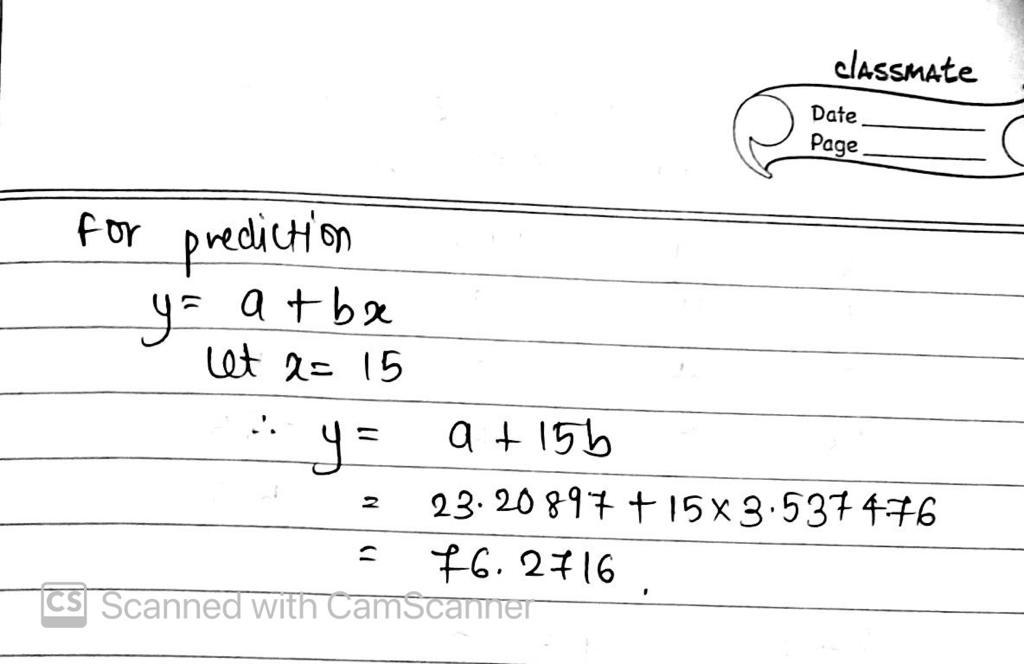 classmate
Date
Page
For prediction
y = a + bx
let x = 15
∴ y = a + 15b
= 23.20897 + 15 × 3.537476
= 76.2716.
CS Scanned with CamScanner